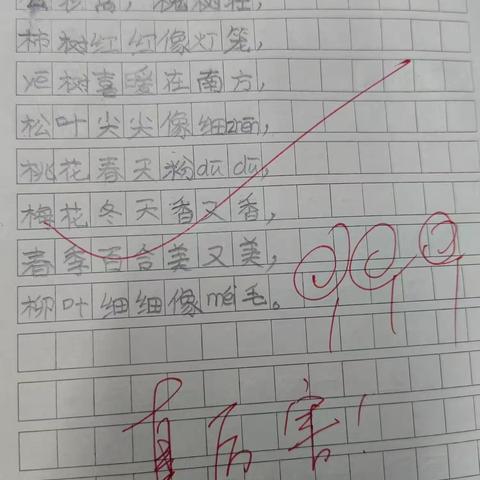 柿树红红像灯笼，
yē树喜暖在南方，
松叶尖尖像细zhēn，
桃花春天粉dū dū，
梅花冬天香又香，
春季百合美又美，
柳叶细细像méi毛。
真厉害！